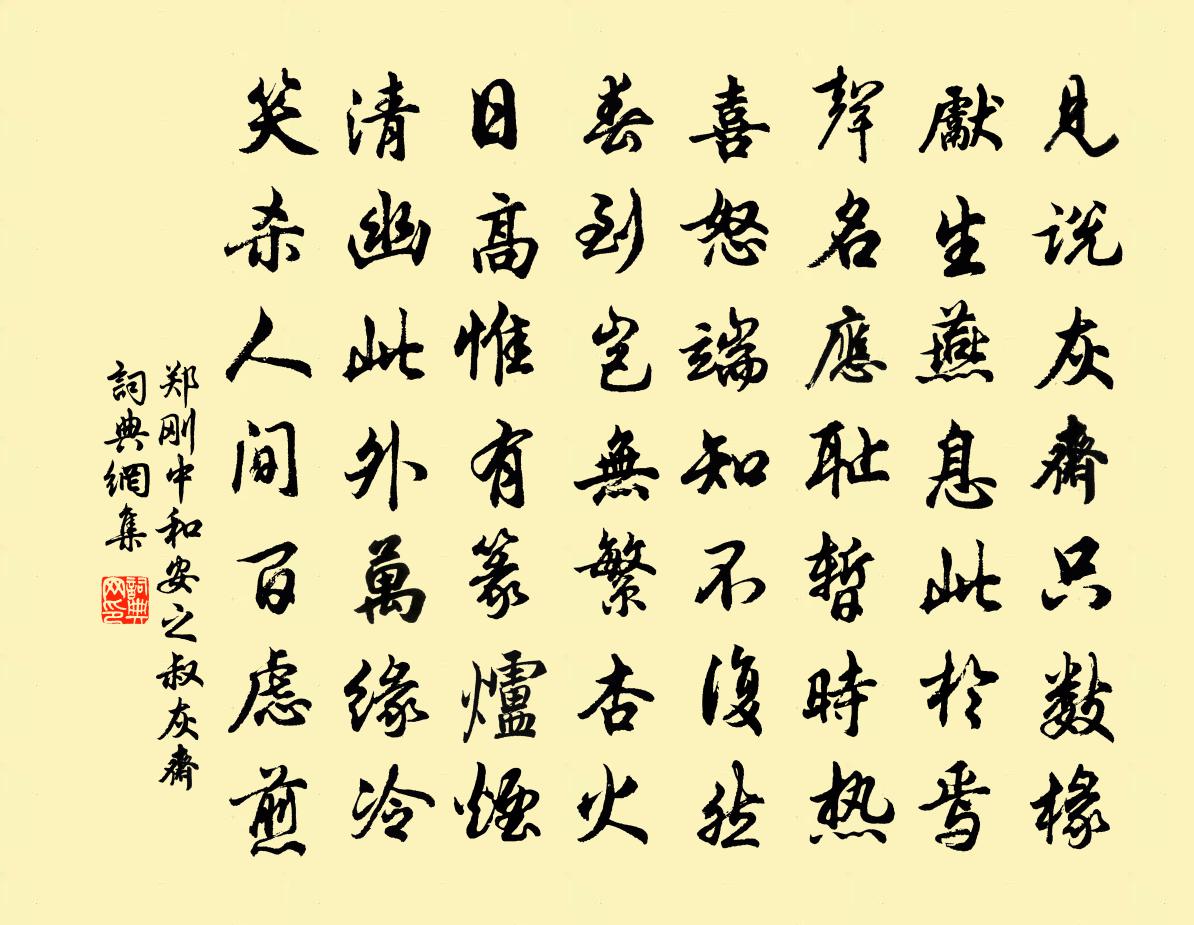 見说灰齋只数椽
獻生燕息此於焉
聲名應耻暫時热
喜怒端知不復然
春到豈無繁杏火
日高惟有篆爐煙
清幽此外萬緣冷
笑杀人间百慮煎
郑刚中和安之叔灰齋
詞典網集
詞典
网印